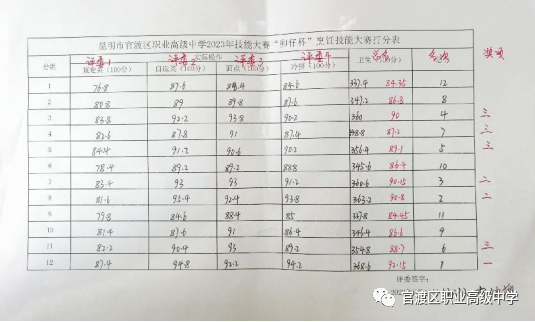 昆明市官渡区职业高级中学2023年技能大赛"卯仔杯"烹饪技能大赛打分表
实际操作
评委1 评委2 评委3 评委4 总分 名次 奖项
规定菜（100分） 自选菜（100分） 面点（100分） 冷拼（100分） 卫生（100分）
1 76.8 87.6 84.6 337.4 84.35 12
2 80.8 89 89.8 87.6 347.2 86.8 8
3 83.8 92.2 93.8 90.2 360 90 4 三
4 82.6 87.8 91 87.4 348.8 87.2 7 三
5 84.4 91.2 90.6 90.2 356.4 89.1 5 三
6 78.4 89.2 89.2 88.8 345.6 86.4 10
7 83.4 93 93 91.2 360.6 90.15 3 二
8 81.6 95.4 92.4 93.8 363.2 90.8 2 二
9 79.8 84.6 88.4 85 337.8 84.45 11
10 81.4 87.6 91 86.4 346.4 86.6 9
11 82.2 90.4 93 89.2 354.8 88.7 6 三
12 87.4 94.8 92.2 94.2 368.6 92.15 1 一
评委签字：
官渡区职业高级中学